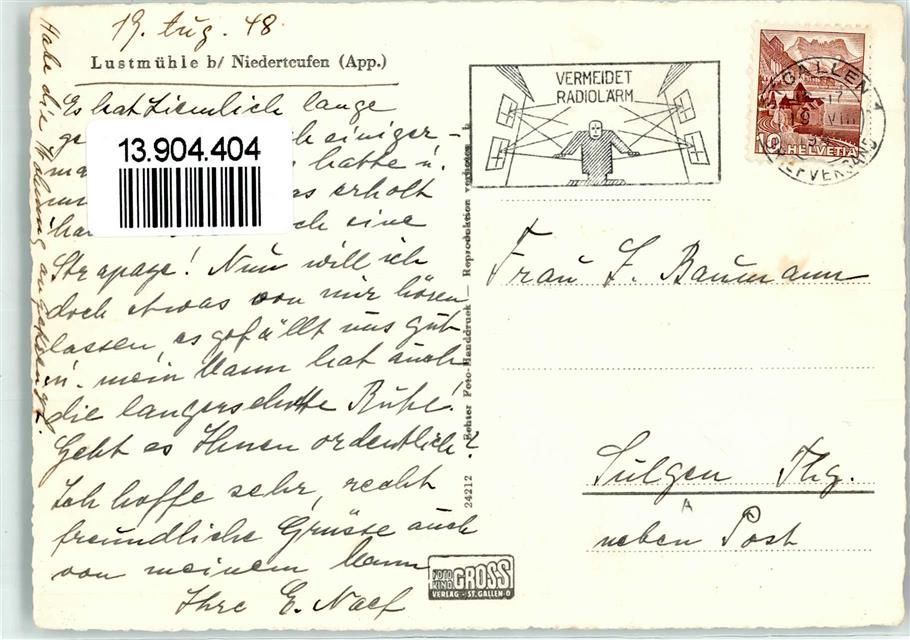 19. Aug. 48.
Lustmühle b/ Niederteufen (App.)
Es hat ziemlich lange
einiger-
hatte u.
erholt
eine
Strapaze! Nun will ich
doch etwas von mir hören
lassen, es gefällt uns gut
u. mein Mann hat auch
die langersehnte Ruhe!
Geht es Ihnen ordentlich?
Ich hoffe sehr, recht
freundliche Grüsse auch
von meinem Mann
Ihre E. Naef
Habe die
13.904.404
24212 Echter Foto-Handdruck — Reproduktion verboten
FOTO
KINO
GROSS
VERLAG - ST. GALLEN-O
VERMEIDET
RADIOLÄRM
GALLEN 1
19 VIII
10 HELVETIA
Frau F. Baumann
Sulgen Thg.
A
neben Post